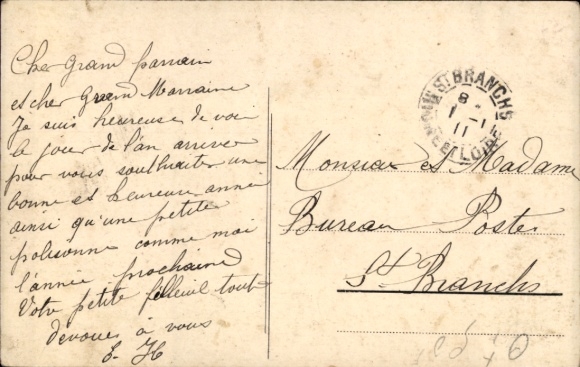 Cher Grand parrain
et cher Grand Marraine
Je suis heureuse de voir
le jour de l'an arriver
pour vous souhaiter une
bonne et heureuse année
ainsi qu'une petite
polisonne comme moi
l'année prochaine
Votre petite filleul tout
devouée à vous
E. H
ST BRANCHS
8
1 - 1
11
ET LOIRE
Monsieur et Madame
Bureau Poste
St Branchs